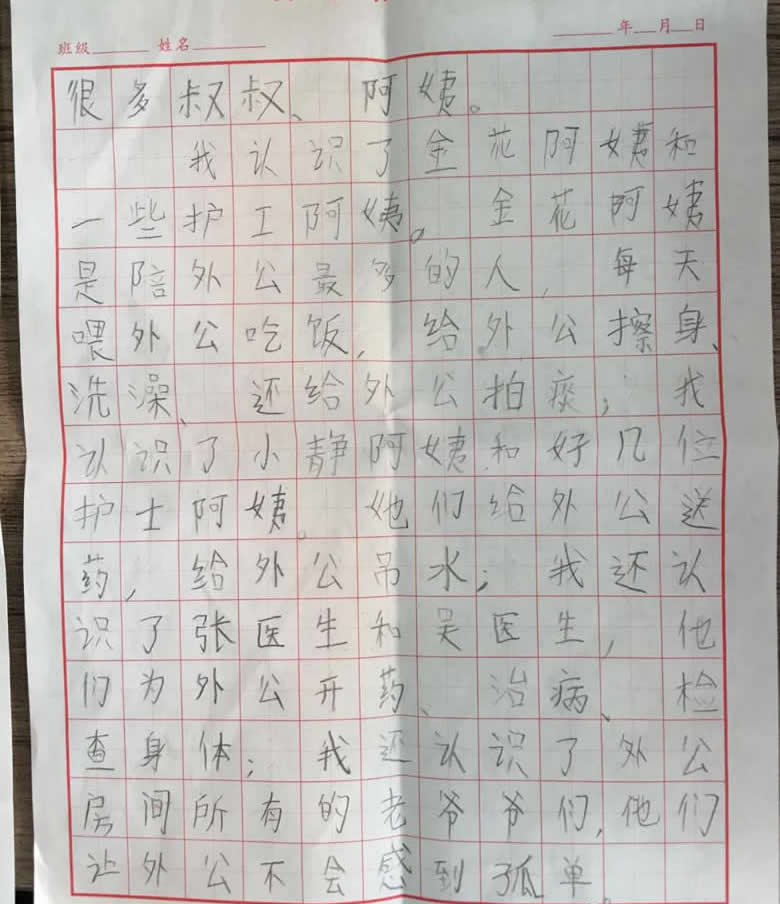 班级______ 姓名______ ______年__月__日
很多叔叔、阿姨。
我认识了金花阿姨和
一些护工阿姨。金花阿姨
是陪外公最多的人，每天
喂外公吃饭，给外公擦身、
洗澡、还给外公拍痰；我
认识了小静阿姨和好几位
护士阿姨。她们给外公送
药，给外公吊水；我还认
识了张医生和吴医生，他
们为外公开药、治病、检
查身体；我还认识了外公
房间所有的老爷爷们，他们
让外公不会感到孤单。